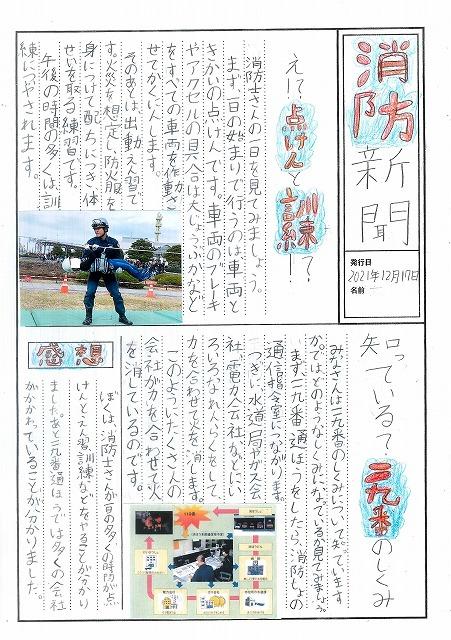 消防新聞
発行日
2021年12月17日
名前
え!?点けんと訓練!?
消防士さんの一日を見てみましょう。
まず、一日の始まりで行うのは車両と
きかいの点けんです。車両のブレーキ
やアクセルの具合は大じょうぶかなど
をすべての車両を作動さ
せてかくにんします。
そのあとは出動えん習で
す。火災を想定し防火服を
身につけて配ちにつき体
せいを取る練習です。
午後の時間の多くは訓
練につやされます。
知っている?一一九番のしくみ
みなさんは一一九番のしくみについて知っています
か。ではどのようなしくみになっているか見てみましょう。
まず、一一九番通ほうをしたら、消防しょの
通信指令室につながります。
つぎに、水道局やガス会
社、電力会社などにい
ろいろなれんらくをして、
力を合わせて火を消します。
このようにたくさんの
会社が力を合わせて火
を消しているのです。
感想
ぼくは、消防士さんが一日の多くの時間が点
けんとえん習訓練などをやることが分かり
ました。あと一一九番通ほうでは多くの会社
がかかわっていることが分かりました。
119番